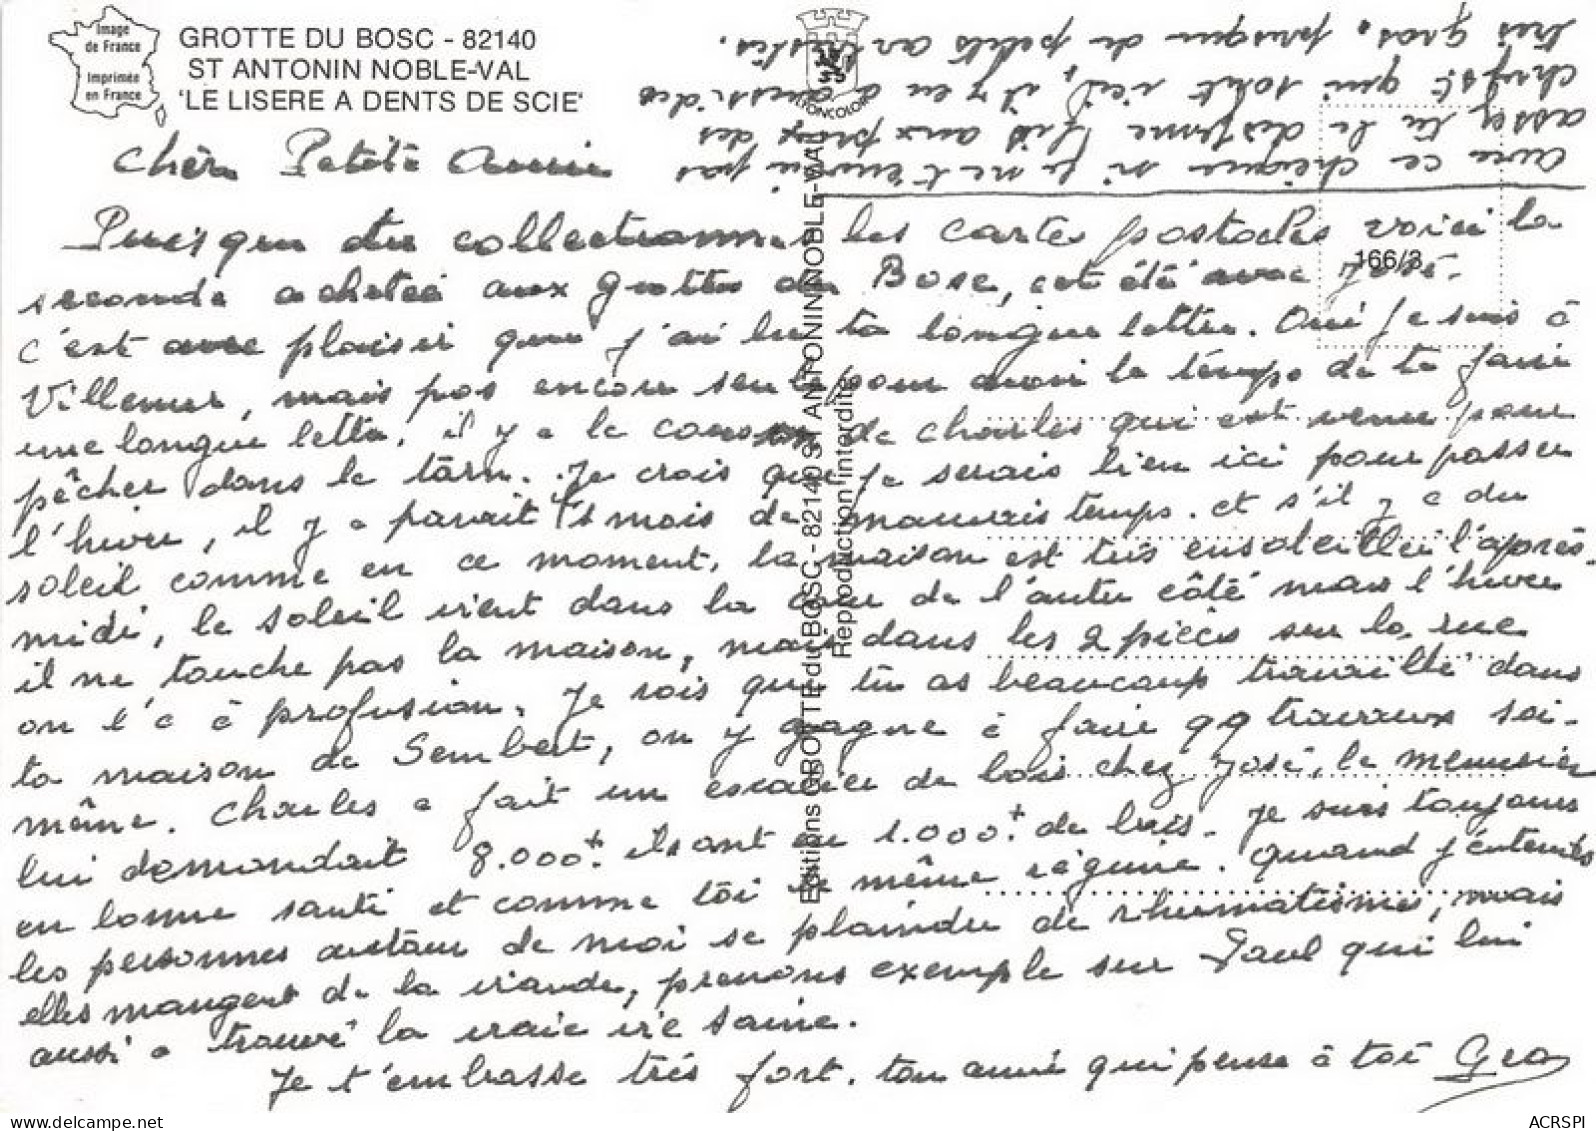 Image
de France
Imprimée
en France
GROTTE DU BOSC - 82140
ST ANTONIN NOBLE-VAL
'LE LISERE A DENTS DE SCIE'
chère Petite Amie
Puisque tu collectionnes les cartes postales voici la
seconde achetée aux grottes du Bosc, cet été avec José.
c'est avec plaisir que j'ai lu ta longue lettre. Oui je suis à
Villemur, mais pas encore seule pour avoir le temps de te faire
une longue lettre. il y a le cousin de charles qui est venu pour
pêcher dans le tarn. Je crois que je serais bien ici pour passer
l'hiver, il y a parait il 1 mois de mauvais temps. et s'il y a du
soleil comme en ce moment, la maison est très ensoleillée l'après-
midi, le soleil vient dans la cour de l'autre côté mais l'hiver
il ne touche pas la maison, mais dans les 2 pièces sur la rue
on l'a à profusion. Je vois que tu as beaucoup travaillé dans
ta maison de Sembert, on y gagne à faire qq travaux soi-
même. Charles a fait un escalier de bois chez José, le menuisier
lui demandait 8.000+. ils ont eu 1.000+. de bois. Je suis toujours
en bonne santé et comme toi le même régime. Quand j'entends
les personnes autour de moi se plaindre de rhumatismes, mais
elles mangent de la viande, prenons exemple sur Paul qui lui
aussi a trouvé la vraie vie saine.
Je t'embrasse très fort. ton amie qui pense à toi
avec ce chèque si je ne t'envoi pas
assez tu le dis, fais aux prix des
chryst. qui sont ici, il y en a aussi des
très gros, presque de petits arbustes.
166/3
Editions GROTTE du BOSC - 82140 ST ANTONIN NOBLE-VAL
Reproduction interdite
ACRSPI